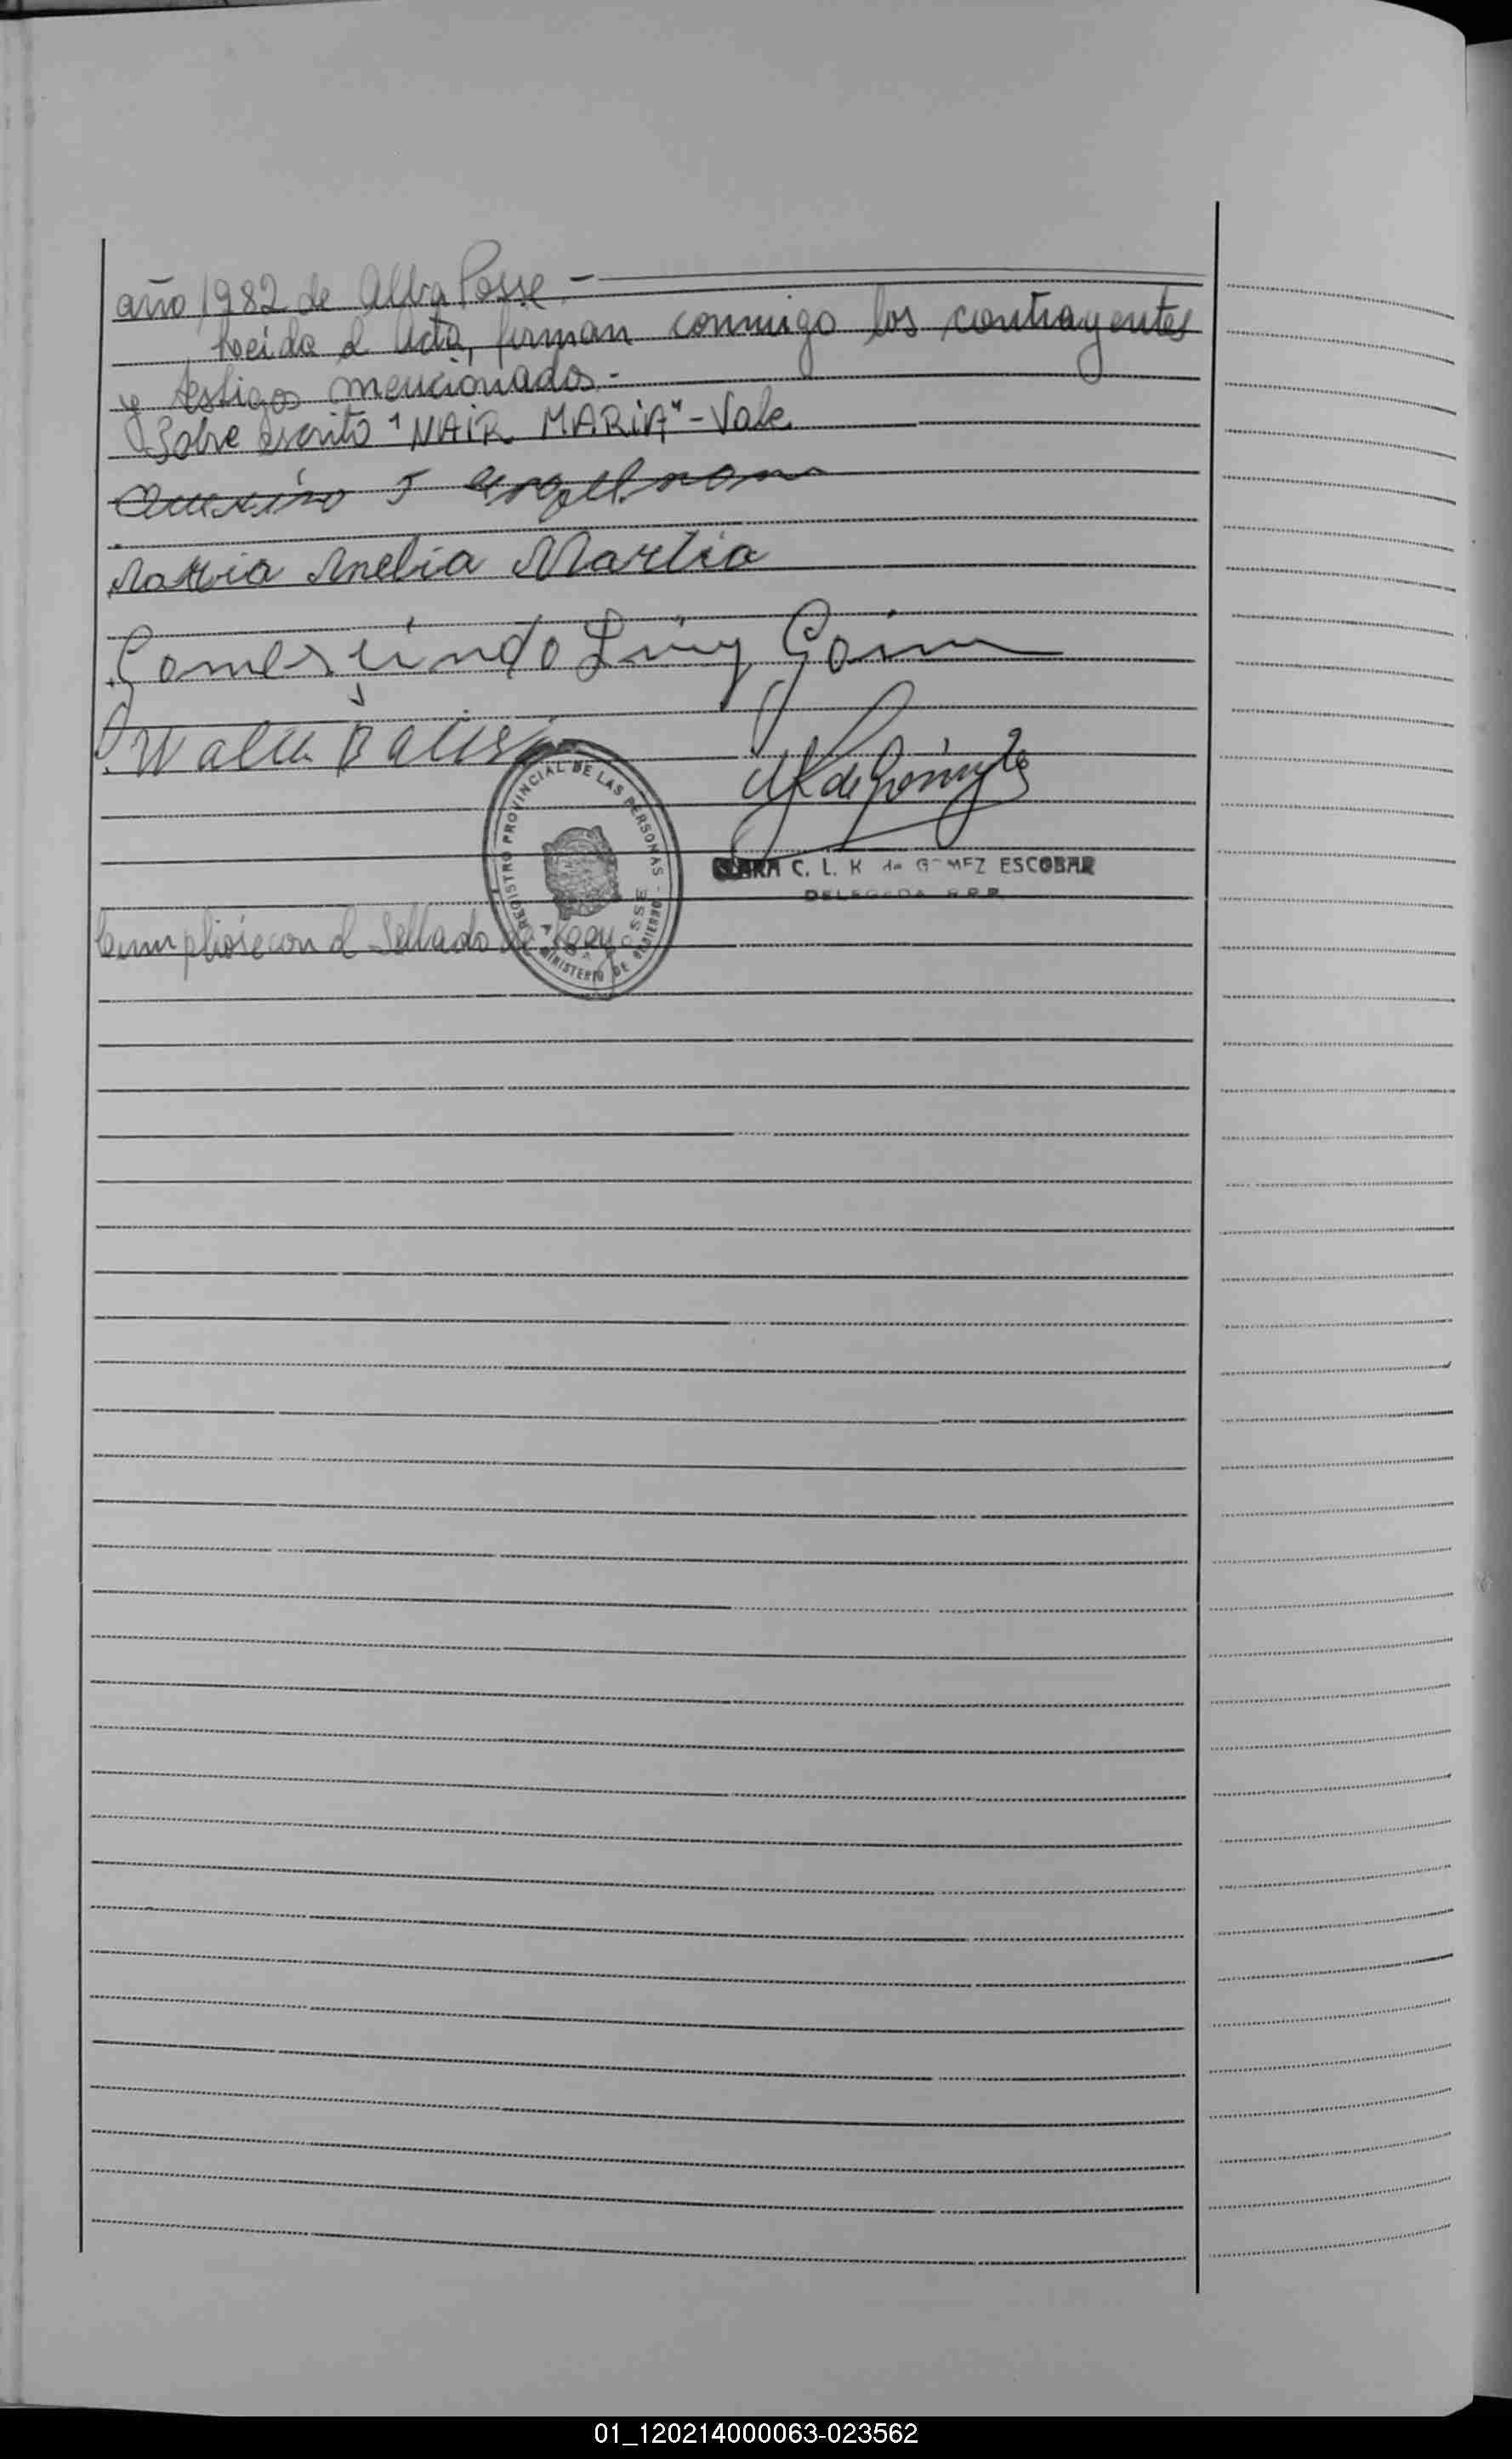 año 1982 de Alba Posse.-
Leida el Acta, firman conmigo los contrayentes
y testigos mencionados.-
Sobre escrito "NAIR MARIA" - Vale
Maria Anelia
Gomersindo
Walter
REGISTRO PROVINCIAL DE LAS PERSONAS
ALBA POSSE
MINISTERIO DE GOBIERNO
CLARA C. L. K de GOMEZ ESCOBAR
DELEGADA R.P.P.
Cumpliose con el Sellado de Ley
01_120214000063-023562